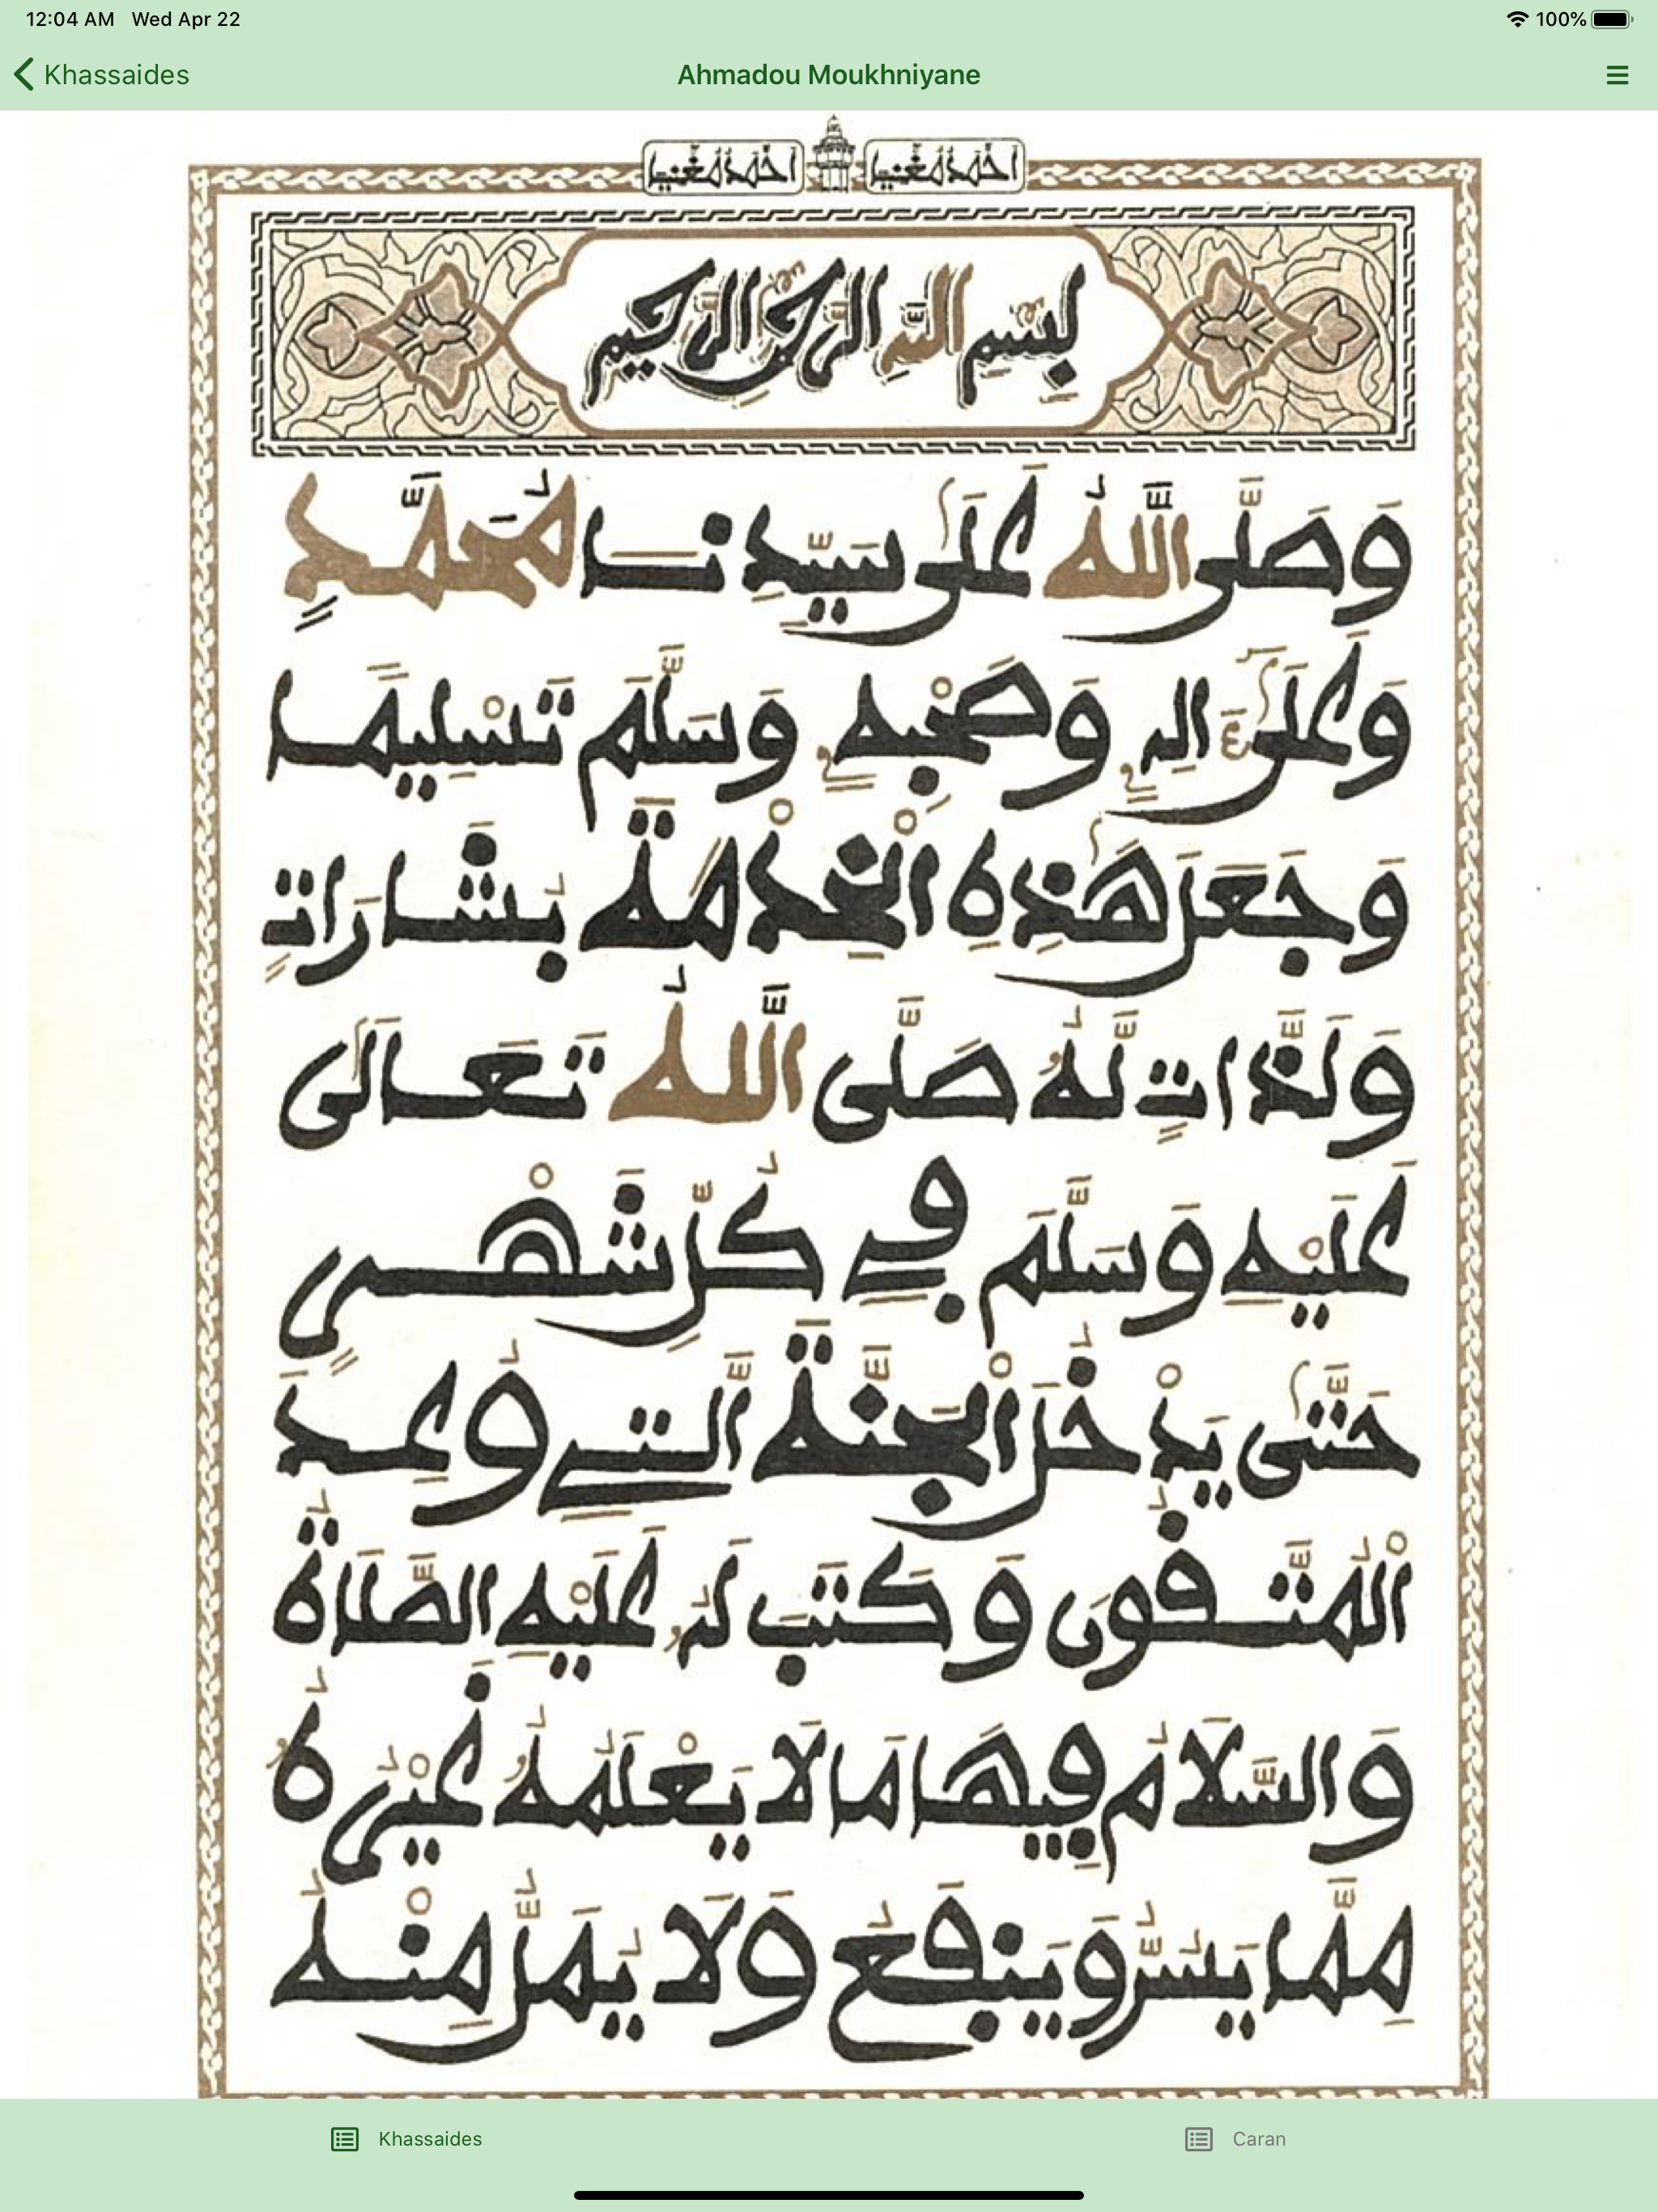 12:04 AM Wed Apr 22
100%
Khassaides
Ahmadou Moukhniyane
بِسْمِ اللَّهِ الرَّحْمَٰنِ الرَّحِيمِ
وَصَلَّى اللَّهُ عَلَى سَيِّدِنَا مُحَمَّدٍ
وَعَلَىٰ ءَالِهِ وَصَحْبِهِ وَسَلَّمَ تَسْلِيمًا
وَجَعَلَ هَٰذِهِ الْخِدْمَةَ بِشَارَاتٍ
وَلَذَّاتٍ لَهُ صَلَّى اللَّهُ تَعَالَى
عَلَيْهِ وَسَلَّمَ فِي كُلِّ شَهْرٍ
حَتَّىٰ يَدْخُلَ الْجَنَّةَ الَّتِي وُعِدَ
الْمُتَّقُونَ وَكَتَبَ لَهُ عَلَيْهِ الصَّلَاةُ
وَالسَّلَامُ فِيهَا مَا لَا يَعْلَمُهُ غَيْرُهُ
مِمَّا يَسُرُّ وَيَنْفَعُ وَلَا يُمَلُّ مِنْهُ
Khassaides
Caran